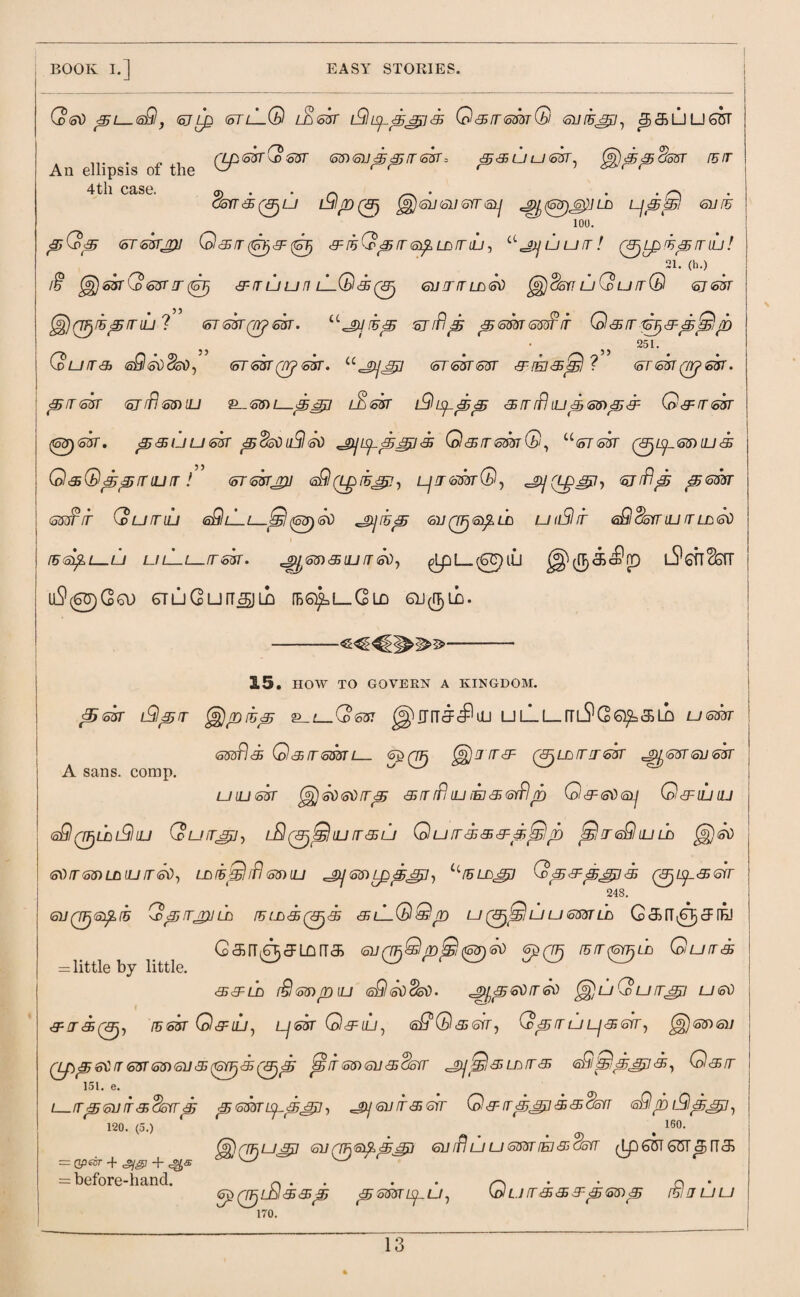 BOOK I.] EASY STORIES.
லே தடவி, ஏழு எட்டு மீன் பிடித்துக் கொண்டு வந்து, தகப்பன்
An ellipsis of the
4th case.
முன்னே வைத்தான். தகப்பன், இத்தனை நா
ளைக்குப் பிறகு இவ்வளவு ஆனாலும் புத்தி வந்
100.
ததே என்று கொஞ்சஞ் சந்தோஷமாய், “அப்பா! குழந்தாய்!
21. (h.)
நீ இன்னேரஞ் சாப்பாட்டுக்கு வராமல் இளைப்போடு ஏன்
இருந்தாய் ?” என்றான். “அந்த ஏரித் தண்ணீர் கொஞ்சத்திற்
251.
போக வில்லை,” என்றான். “அது என்ன சங்கதி ?” என்றான்.
தான் ஏரியை உடைத்து மீன் பிடித்த காரியத்தைச் சொன்
னான். தகப்பன் தலையில் அடித்துக் கொண்டு, “என் குடியைக்
கெடுத்தாயா !” என்று விழுந்து, புரண்டு, அழுது, ஏரித் தண்
ணீர் போய் விட்டதினால் அந்த வருஷம் பயிர் விளையாமல்
நஷ்டப் பட்டான். ஆகையால், மூடனாய் இருக்கிற பிள்ளை
யினாலே எப்போதும் நஷ்டமே வரும்.
15. HOW TO GOVERN A KINGDOM.
தன் பிதா இறந்த உடனே இராச்சிய பட்டாபிஷேகம் பண்
A sans. comp.
ணிக் கொண்ட ஒரு இராச குமாரன் ஆனவன்
பயன் இல்லாத காரியங்களிற் செலவு செய்ய
விரும்பிய போது, மிகுதியாகப் பொக்கசத்திற் திரவியம் இல்
லாமையால், மந்திரியை அழைத்து, “நமது தேசத்துக் குடிகள்
248.
வருஷந் தோறும் நமக்குக் கட்டுகிற பகுதிப் பணம் கொஞ்சங்
=little by little.
கொஞ்சமாக வருகிறதினால் ஒரு நாளும் பொக்
கசம் நிறைய வில்லை. ஆதலால் இப்போது பல
சரக்கு, நன்செய், புன்செய், வீடுகள், தோப்புகள், இவை
முதலானவைகளுக்குத் தீர்வைகளை அதிகமாக விதித்து, கொ
151. e.
டாதவர்களைத் தண்டித்து, அவர்கள் சொத்துக்களை விற்பித்து,
120. (5.) 160.
= முன் + அது + ஆக
= before-hand.
இருபது வருஷத்து வரிப் பணங்களை முன்னதாக
ஒருமிக்கத் தண்டிப், பொக்கசத்தை நிரப்ப
170.
13